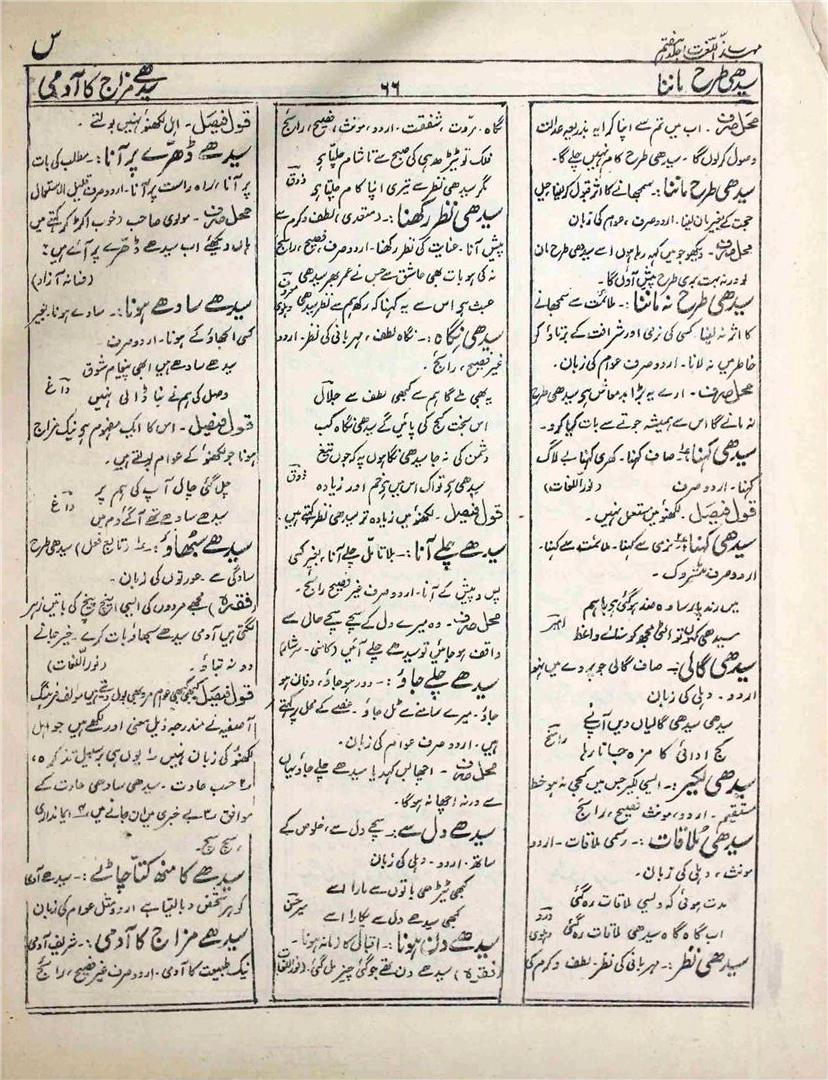 مہذب اللغات جلد ہفتم
س
سیدھی طرح ماننا
۶۶
سیدھے مزاج کا آدمی
محل صرف ۔ اب میں تم سے اپنا کرایہ بذریعہ عدالت
وصول کرلوں گا ۔ سیدھی طرح کام نہیں چلے گا۔
سیدھی طرح ماننا:۔ سمجھانے کا اثر قبول کرلینا حیل
حجت کے بغیر مان لینا۔ اردو صرف، عوام کی زبان
محل صرف ۔ دیکھو جو میں کہہ رہا ہوں اسے سیدھی طرح مان
لو ورنہ بہت بری طرح پیش آؤں گا۔
سیدھی طرح نہ ماننا:۔ ملائمت سے سمجھانے
کا اثر نہ لینا۔ کسی کی نرمی اور شرافت کے برتاؤ کو
خاطر میں نہ لانا۔ اردو صرف عوام کی زبان۔
محل صرف ۔ ارے یہ بڑا بدمعاش ہے سیدھی طرح
نہ مانے گا اس سے ہمیشہ جوتے سے بات کیا کرو۔
سیدھی کہنا:۔ صاف کہنا۔ کھری کہنا بے لاگ
کہنا۔ اردو صرف (نور اللغات)
قول فیصل ۔ لکھنؤ میں مستعمل نہیں۔
سیدھی کہنا:۔ نرمی سے کہنا۔ ملائمت سے کہنا۔
اردو صرف متروک۔
میں رند پارسا وہ ضد ہوگئی ہے باہم
سیدھی کہوں تو الٹی مجھ کو سنائے واعظ امیر
سیدھی گالی:۔ صاف گالی جو پردے میں نہ ہو
اردو۔ دہلی کی زبان
سیدھی سیدھی گالیاں دیں آپ نے
کج ادائی کا مزہ جاتا رہا راسخ
سیدھی لکیر:۔ ایسی لکیر جس میں کجی نہ ہو خط
مستقیم۔ اردو، مونث فصیح، رائج
سیدھی ملاقات:۔ رسمی ملاقات۔ اردو
مونث، دہلی کی زبان۔
مدت ہوئی کہ ویسی ملاقات رہ گئی
اب گاہ گاہ سیدھی ملاقات رہ گئی درد دہلوی
سیدھی نظر:۔ مہربانی کی نظر۔ لطف و کرم کی
نگاہ۔ مروت، شفقت۔ اردو، مونث، فصیح، رائج
فلک تو ٹیڑھ ہی کی صبح سے تا شام چلتا ہے
مگر سیدھی نظر سے تیری اپنا کام چلتا ہے ذوق
سیدھی نظر رکھنا:۔ (متعدی) لطف و کرم سے
پیش آنا۔ عنایت کی نظر رکھنا۔ اردو صرف، فصیح، رائج
نہ کی ہو بات بھی عاشق سے جس نے عمر بھر سیدھی
عبث ہے اس سے یہ کہنا کہ رکھ ہم سے نظر سیدھی معروف دہلوی
سیدھی نگاہ:۔ نگاہ لطف، مہربانی کی نظر۔ اردو
غیر فصیح، رائج۔
یہ بھی ملے گا ہم سے کبھی لطف سے جلال
اس بخت کج کی پائیں گے سیدھی نگاہ کب
دشمن کی نہ جا سیدھی نگاہوں پہ کہ جوں تیغ
سیدھی ہے تو اک اس میں ہے خم اور زیادہ ذوق
قول فیصل ۔ لکھنؤ میں زیادہ تر سیدھی نظر کہتے ہیں۔
سیدھے چلے آنا:۔ بلا تامل چلے آنا، بغیر کسی
پس و پیش کے آنا۔ اردو صرف غیر فصیح رائج۔
محل صرف ۔ وہ میرے دل کے سچے سچے حال سے
واقف ہو جائیں تو سیدھے چلے آئیں
سیدھے چلے جاؤ:۔ دور ہو جاؤ، دفان ہو
جاؤ۔ میرے سامنے سے ٹل جاؤ۔ غصے کے محل پر کہتے
ہیں۔ اردو صرف عوام کی زبان۔
محل صرف ۔ اچھا بس کہدیا سیدھے چلے جاؤ یہاں
سے ورنہ اچھا نہ ہوگا۔
سیدھے دل سے:۔ سچے دل سے، خلوص کے
ساتھ۔ اردو۔ دہلی کی زبان
کبھی ٹیڑھی باتوں سے مارا اسے
کبھی سیدھے دل سے پکارا اسے میر حسن
سیدھے دن ہونا:۔ اقبال کا زمانہ ہونا۔
(فقرہ) سیدھے دن تھے جو گئی چیز مل گئی۔ (نور اللغات)
قول فیصل ۔ اہل لکھنؤ نہیں بولتے۔
سیدھے ڈھرے پر آنا:۔ مطلب کی بات
پر آنا، راہ راست پر آنا۔ اردو صرف قلیل الاستعمال
محل صرف ۔ مولوی صاحب (خوب اکڑ کر) کہتے ہیں
ہاں دیکھئے اب سیدھے ڈھرے پر آئے ہیں:
(فسانہ آزاد)
سیدھے سادھے ہونا:۔ سادے ہونا بغیر
کسی الجھاؤ کے ہونا۔ اردو صرف۔
سیدھے سادھے ہیں ابھی پیغام شوق
وصل کی ہم نے بنا ڈالی نہیں داغ
قول فیصل ۔ اس کا ایک مفہوم ہے نیک مزاج
ہونا جو لکھنؤ کے عوام بولتے ہیں۔
چل گئی چال آپ کی ہم پر
سیدھے سادھے تھے آگئے دم میں داغ
سیدھے سبھاؤ:۔ (تابع فعل) سیدھی طرح
سادگی سے۔ عورتوں کی زبان۔
(فقرہ) مجھے مردوں کی ایسی اینچ پینچ کی باتیں زہر
لگتی ہیں آدمی سیدھے سبھاؤ بات کرے۔ خیر جانے
دو نہ بتاؤ۔ (نور اللغات)
قول فیصل کبھی کبھی عوام مرد بھی بول دیتے ہیں مولف فرہنگ
آصفیہ نے مندرجہ ذیل معنی اور لکھے ہیں جو اہل
لکھنؤ کی زبان نہیں یوں ہی بر سبیل تذکرہ،
۲، حسب عادت۔ سیدھی سادھی عادت کے
موافق ۳، بے خبری میں ان جانے میں، ۴، ایمانداری
سچ سچ۔
سیدھے کا منھ کتا چاٹے:۔ سیدھے آدمی
کو ہر شخص دبا لیتا ہے اردو مثل عوام کی زبان
سیدھے مزاج کا آدمی:۔ شریف آدمی
نیک طبیعت کا آدمی۔ اردو صرف غیر فصیح، رائج